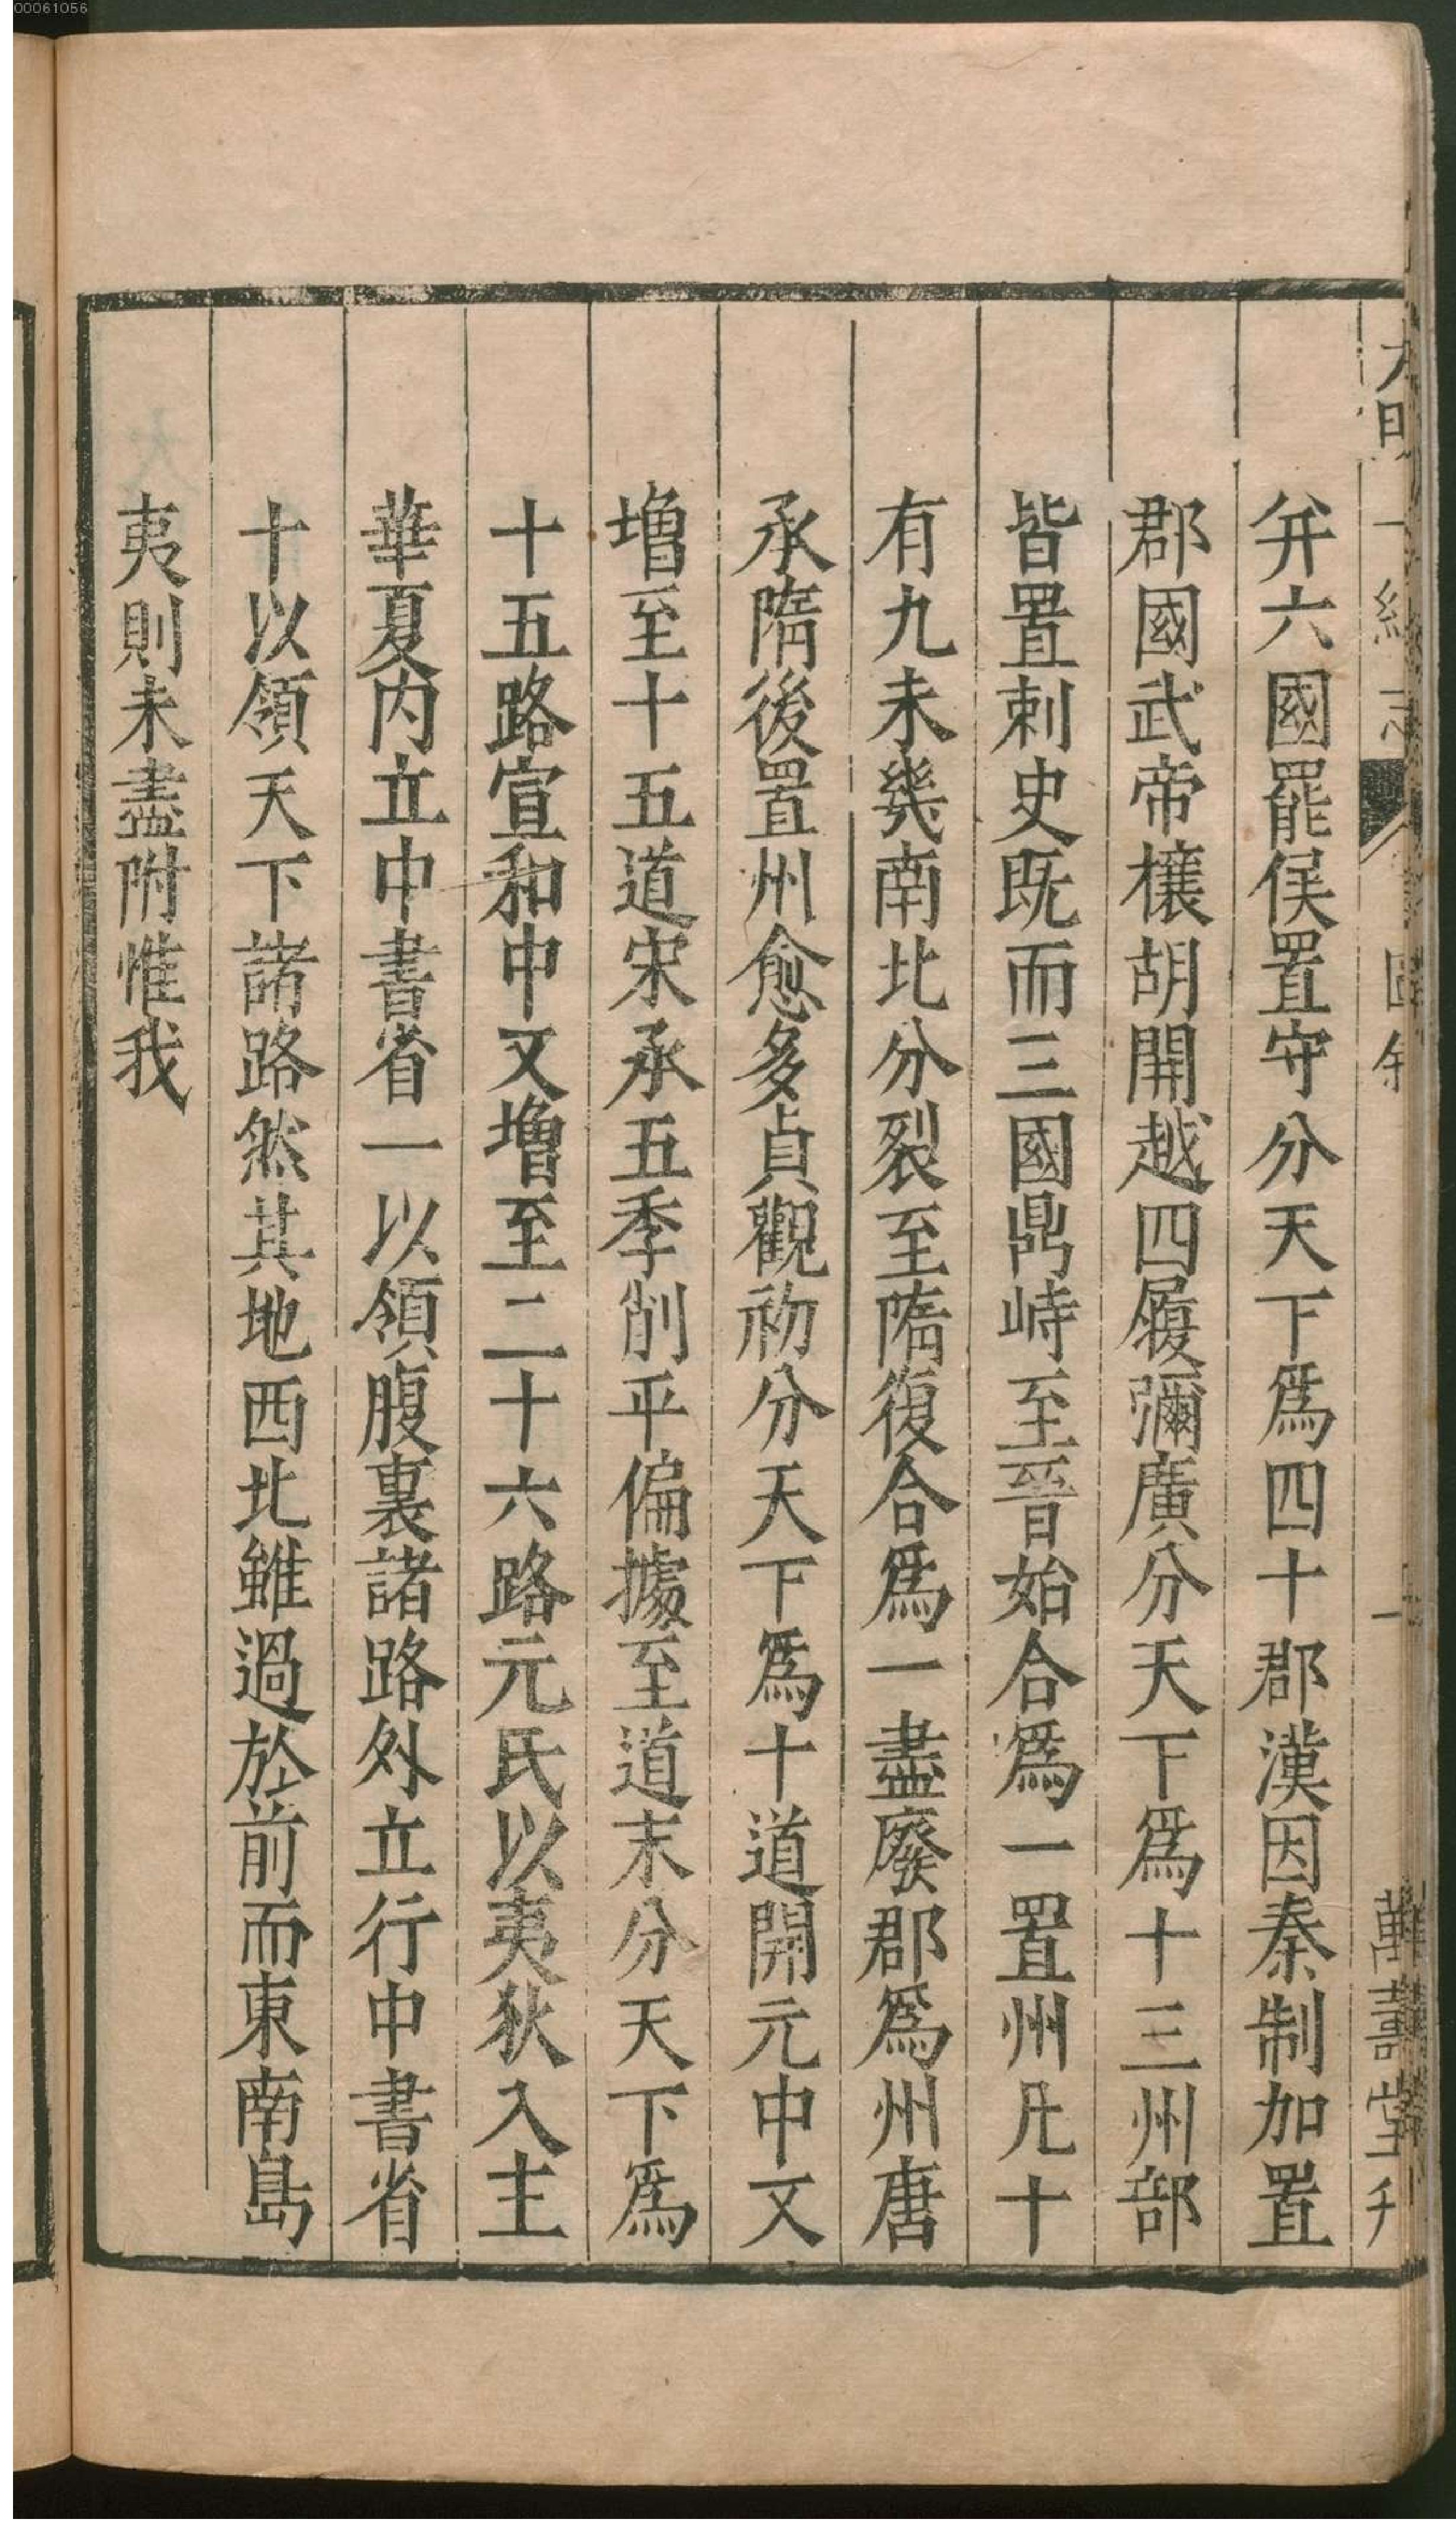 00061056
弁六國罷侯置守分天下爲四十郡漢因秦制加置
郡國武帝欀胡開越四履彌廣分天下爲十三州部
皆置刺史既而三國鼎峙至晉始合爲一置州凡十
有九未幾南北分裂至隋復合爲一盡廢郡爲州唐
承隋後置州愈多貞觀初分天下爲十道開元中又
增至十五道宋承五季削平偏據至道末分天下爲
十五路宣和中又增至二十六路元氏以夷狄入主
華夏内立中書省一以領腹裏諸路外立行中書省
十以領天下諸路然其地西北雖過於前而東南島
夷則未盡附惟我